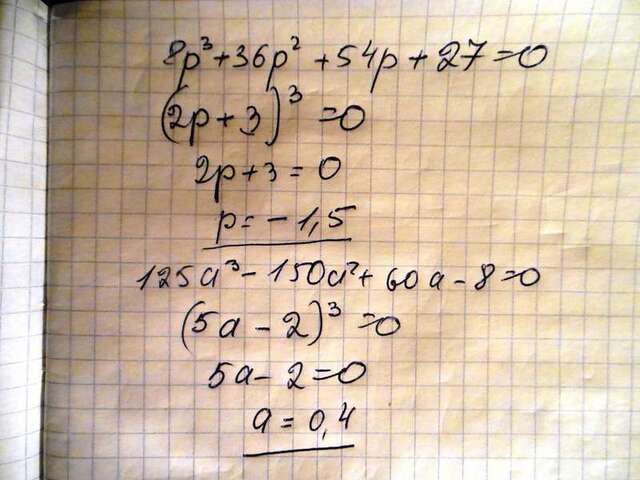 8p³+36p²+54p+27=0
(2p+3)³=0
2p+3=0
p=-1,5
125a³-150a²+60a-8=0
(5a-2)³=0
5a-2=0
a=0,4